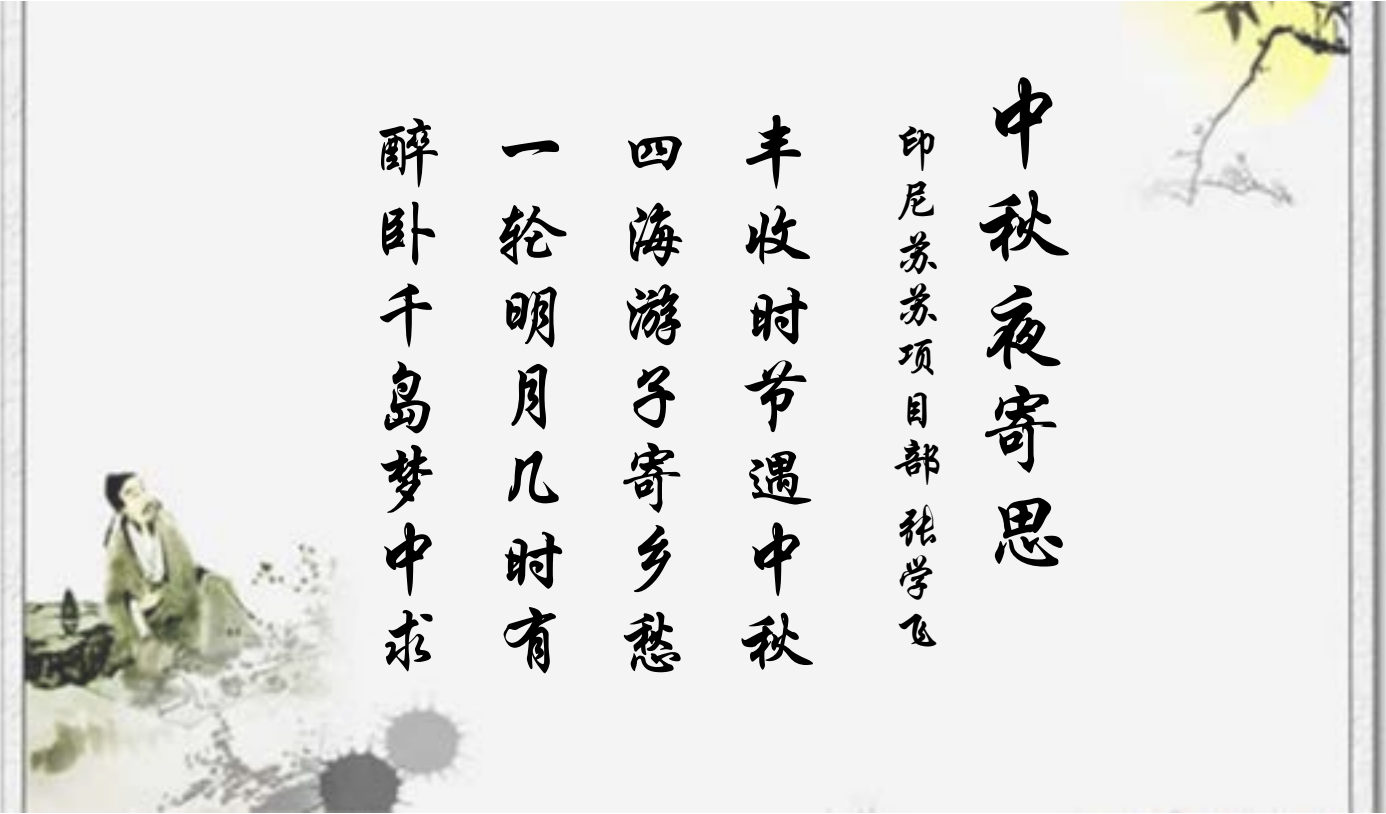 中秋夜寄思
印尼苏苏项目部 张学飞
丰收时节遇中秋
四海游子寄乡愁
一轮明月几时有
醉卧千岛梦中求